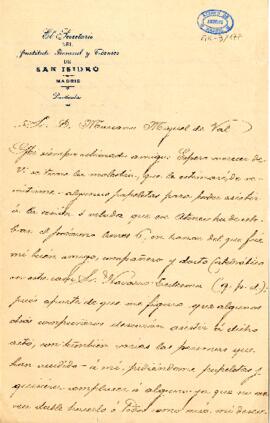 El Secretario
DEL
Instituto General y Técnico
DE
SAN ISIDRO
MADRID
Particular
Sr. D. Mariano Miguel de Val
Mi siempre estimado amigo: Espero merecer de
V. se tome la molestia, que le estimaré, de re-
mitirme algunas papeletas para poder asistir
á la sesión ó velada que en Ateneo ha de cele-
brar el próximo lunes 6, en honor del que fué
mi buen amigo, compañero y docto Catedrático
en esta casa Sr. Navarro Ledesma (q. p. d.);
pues aparte de que me figuro que algunos
otros compañeros desearán asistir á dicho
acto, son también varias las personas que
han acudido á mí, pidiéndome papeletas, y
quisiera complacer á alguno, ya que no me
será dable hacerlo á todos como sería mi deseo.